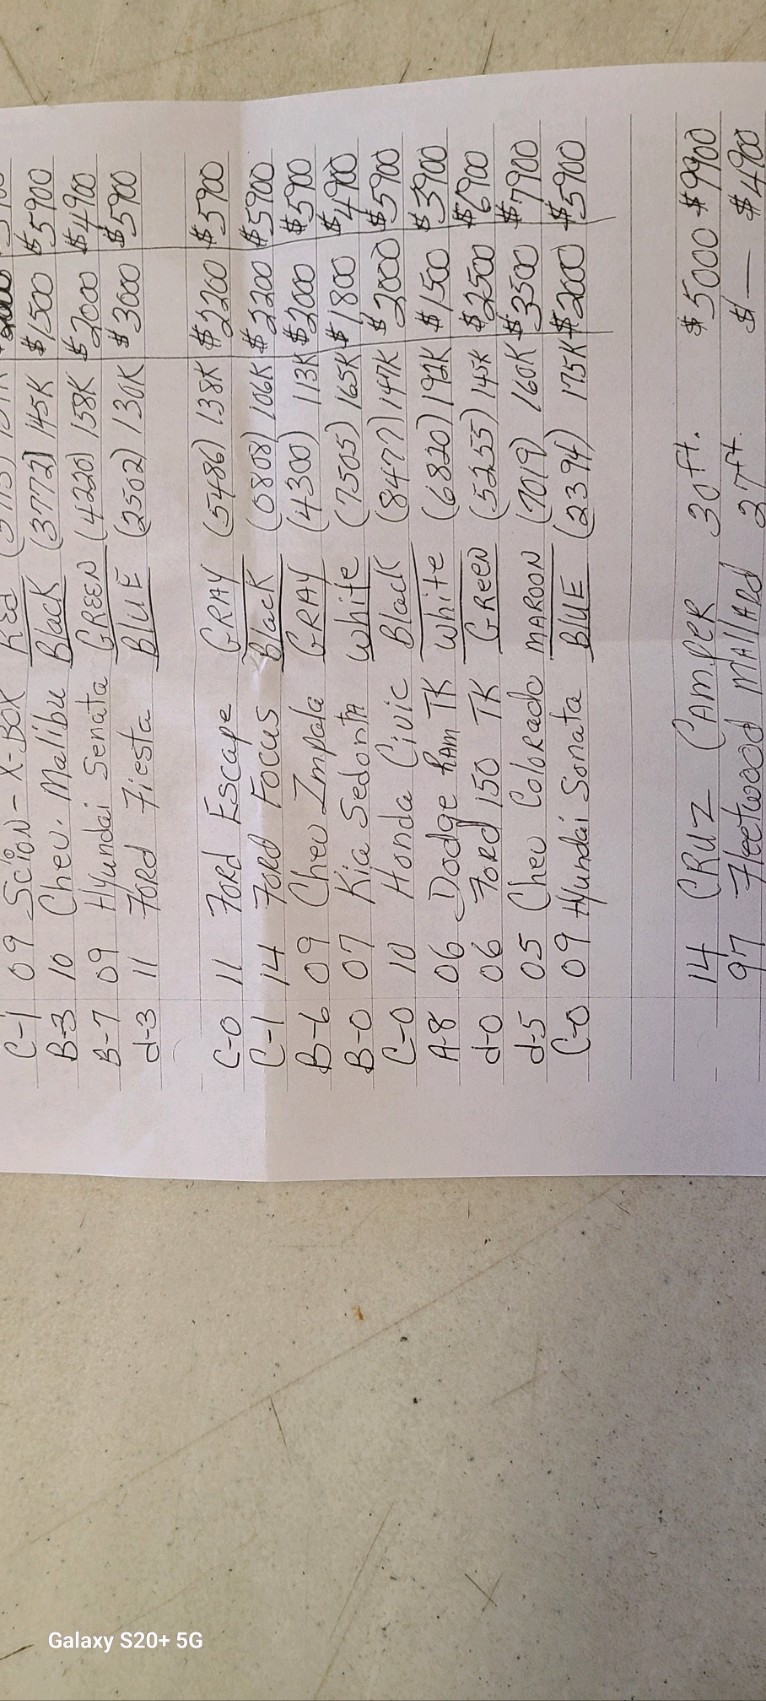 C-1 09 Scion - X-Box Red
B-3 10 Chev. Malibu Black (3772) 145K $1500 $5900
B-7 09 Hyundai Senata GREEN (4220) 158K $2000 $4900
d-3 11 Ford Fiesta BLUE (2502) 130K $3000 $5900
C-0 11 Ford Escape GRAY (5486) 138K $2200 $5900
C-1 14 Ford Focus Black (0808) 106K $2200 $5900
B-6 09 Chev Impala GRAY (4300) 113K $2000 $5900
B-0 07 Kia Sedonta white (7505) 165K $1800 $4900
C-0 10 Honda Civic Black (8477) 147K $2000 $5900
A-8 06 Dodge Ram TK white (6820) 192K $1500 $3900
d-0 06 Ford 150 TK GREEN (5255) 145K $2500 $6900
d-5 05 Chev Colorado MAROON (7019) 160K $3500 $7900
C-0 09 Hyundai Sonata BLUE (2394) 175K $2000 $5900
14 CRUZ CAMPER 30ft. $5000 $9900
97 Fleetwood MAllARd 27ft. $ — $4900
Galaxy S20+ 5G